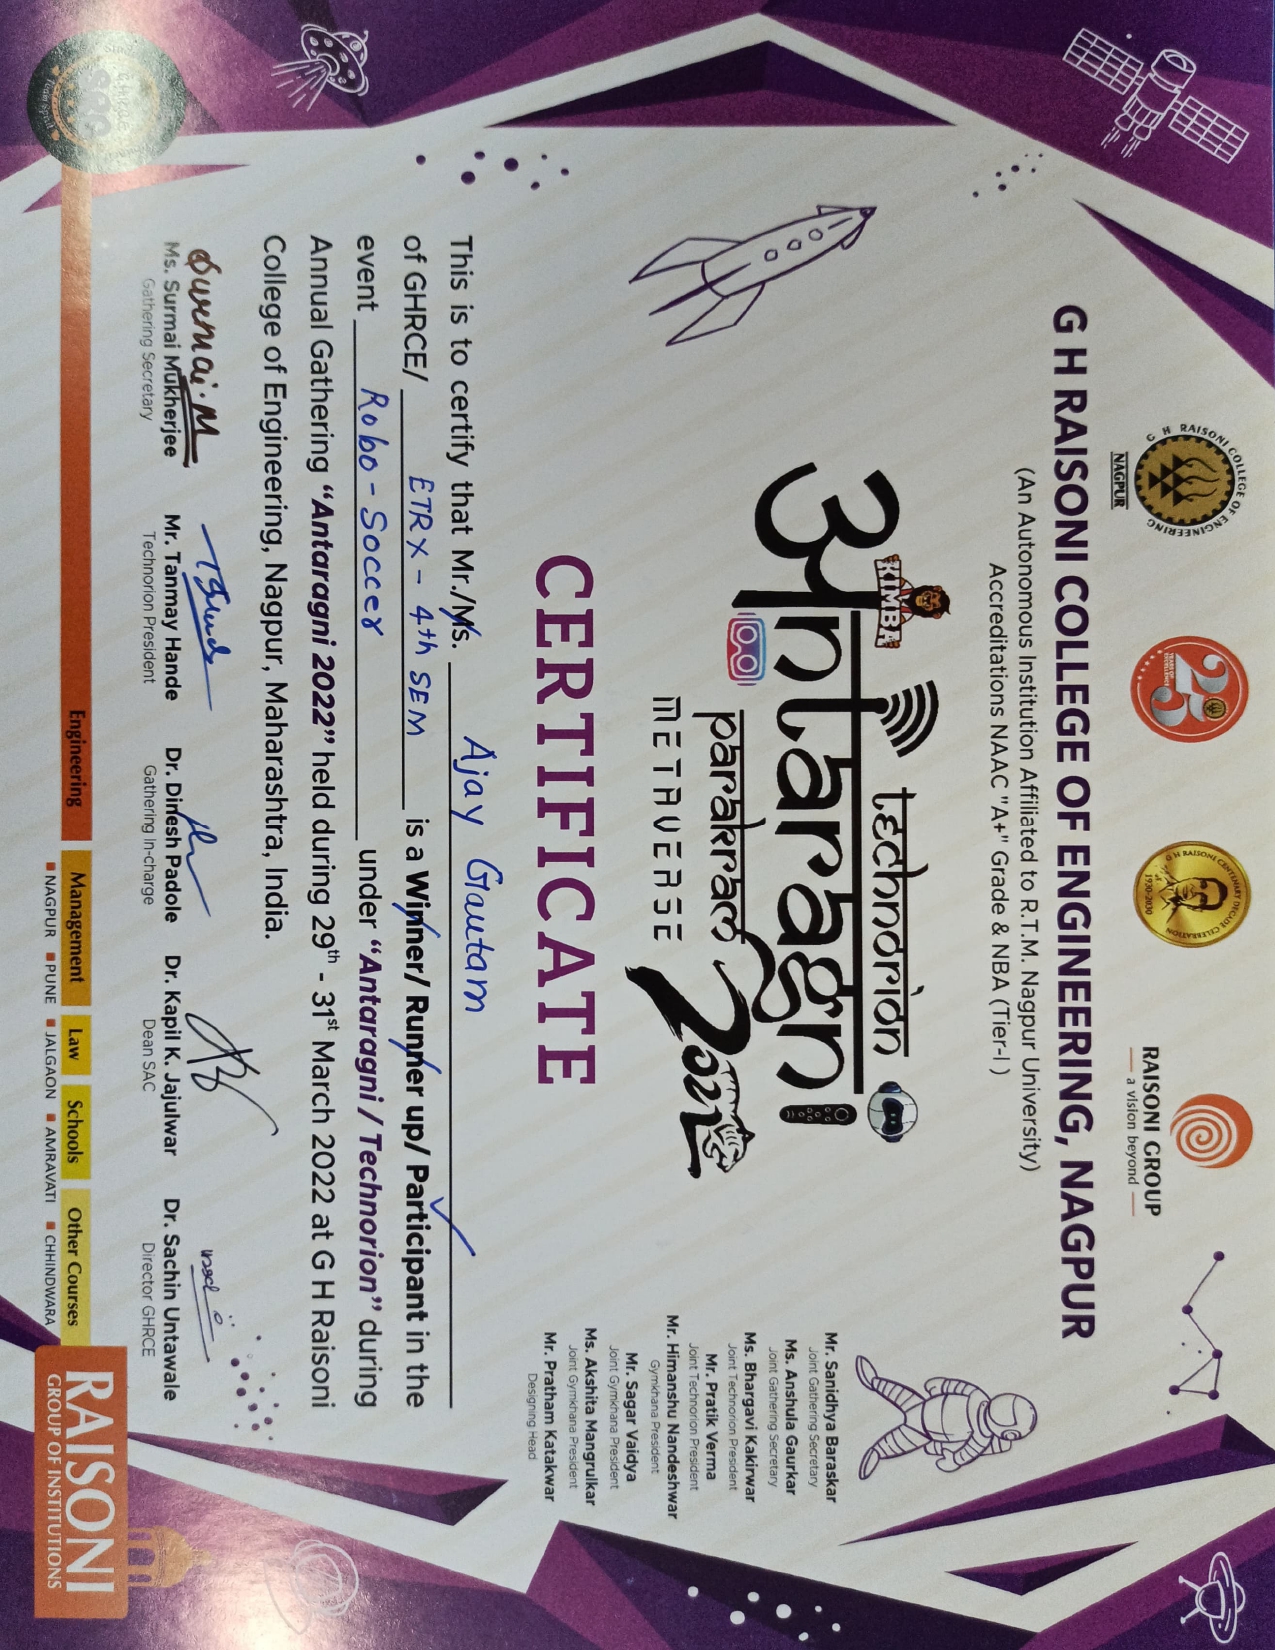 G H RAISONI COLLEGE OF ENGINEERING
NAGPUR
25
YEARS OF EXCELLENCE
G H RAISONI CENTENARY DECADE CELEBRATION
1930-2030
RAISONI GROUP
a vision beyond
G H RAISONI COLLEGE OF ENGINEERING, NAGPUR
(An Autonomous Institution Affiliated to R.T.M. Nagpur University)
Accreditations NAAC "A+" Grade & NBA (Tier-I )
KIMBA
technorion
अntaragni
parakram
2022
METAVERSE
Mr. Sanidhya Baraskar
Joint Gathering Secretary
Ms. Anshula Gaurkar
Joint Gathering Secretary
Ms. Bhargavi Kakirwar
Joint Technorion President
Mr. Pratik Verma
Joint Technorion President
Mr. Himanshu Nandeshwar
Gymkhana President
Mr. Sagar Vaidya
Joint Gymkhana President
Ms. Akshita Mangrulkar
Joint Gymkhana President
Mr. Pratham Katakwar
Designing Head
CERTIFICATE
This is to certify that Mr./Ms. Ajay Gautam
of GHRCE/ ETRX - 4th SEM is a Winner/ Runner up/ Participant in the
event Robo - Soccer under "Antaragni / Technorion" during
Annual Gathering "Antaragni 2022" held during 29th - 31st March 2022 at G H Raisoni
College of Engineering, Nagpur, Maharashtra, India.
Surmai.M
Ms. Surmai Mukherjee
Gathering Secretary
Mr. Tanmay Hande
Technorion President
Dr. Dinesh Padole
Gathering In-charge
Dr. Kapil K. Jajulwar
Dean SAC
Dr. Sachin Untawale
Director GHRCE
GHRCE
SRC
Team Spirit
Engineering Management Law Schools Other Courses
NAGPUR PUNE JALGAON AMRAVATI CHHINDWARA
RAISONI
GROUP OF INSTITUTIONS